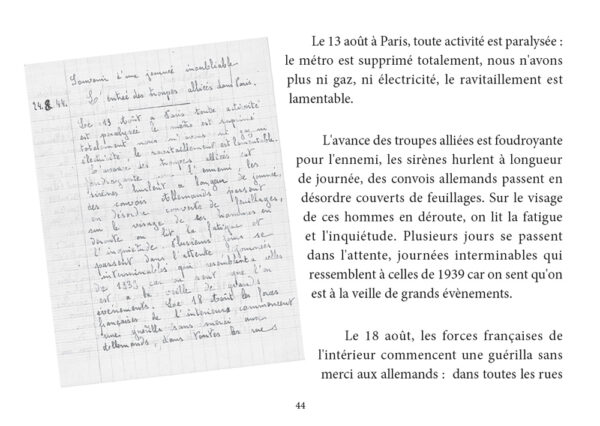 Souvenir d'une journée inoubliable
L'entrée des troupes alliées dans Paris.
24.8.44.
Le 13 Août à Paris toute activité
est paralysée le métro est supprimé
totalement, nous n'avons ni gaz ni
électricité, le ravitaillement est lamentable.
L'avance des troupes alliées est
foudroyante pour l'ennemi, les
sirènes hurlent à longueur de journée,
des convois Allemands passent
en désordre couverts de feuillages,
sur le visage de ces hommes en
déroute on lit la fatigue et
l'inquiétude. Plusieurs jours se
passent dans l'attente, journées
interminables qui ressemblent à celles
de 1939 car on sent que l'on
est à la veille de grands
évènements. Le 18 Août les forces
françaises de l'intérieur commencent
une guérilla sans merci aux
allemands, dans toutes les rues
Le 13 août à Paris, toute activité est paralysée :
le métro est supprimé totalement, nous n'avons
plus ni gaz, ni électricité, le ravitaillement est
lamentable.
L'avance des troupes alliées est foudroyante
pour l'ennemi, les sirènes hurlent à longueur
de journée, des convois allemands passent en
désordre couverts de feuillages. Sur le visage
de ces hommes en déroute, on lit la fatigue
et l'inquiétude. Plusieurs jours se passent
dans l'attente, journées interminables qui
ressemblent à celles de 1939 car on sent qu'on
est à la veille de grands évènements.
Le 18 août, les forces françaises de
l'intérieur commencent une guérilla sans
merci aux allemands : dans toutes les rues
44